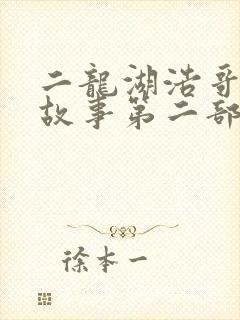 二龍湖浩哥
故事第二部
徐本一